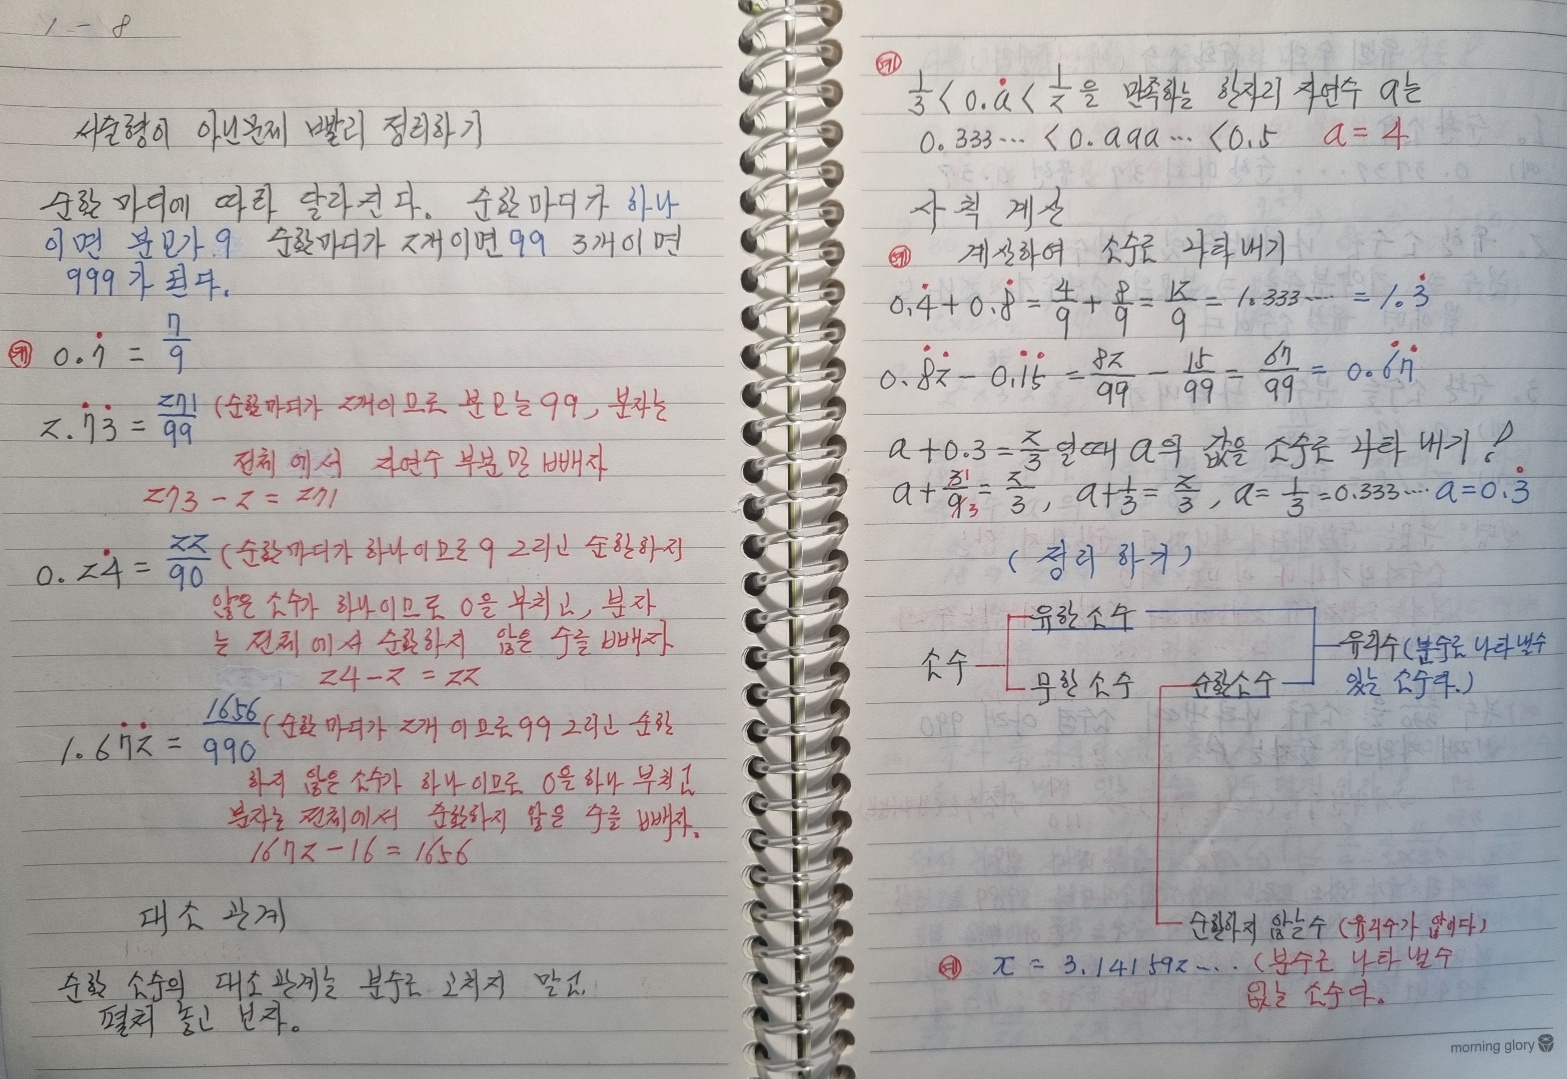 1 - 8
서술형이 아닌문제 빨리 정리하기
순환 마디에 따라 달라진다. 순환마디가 하나
이면 분모가 9 순환마디가 2개이면 99 3개이면
999가 된다.
예 0.7̇ = 7/9
2.7̇3̇ = 271/99 (순환마디가 2개이므로 분모는 99, 분자는
전체에서 자연수 부분만 빼자
273 - 2 = 271
0.24̇ = 22/90 (순환마디가 하나이므로 9 그리고 순환하지
않은 소수가 하나이므로 0을 부치고, 분자
는 전체에서 순환하지 않은 수를 빼자
24 - 2 = 22
1.67̇2̇ = 1656/990 (순환마디가 2개 이므로 99 그리고 순환
하지 않은 소수가 하나이므로 0을 하나 부치고
분자는 전체에서 순환하지 않은 수를 빼자.
1672 - 16 = 1656
대소 관계
순환 소수의 대소관계는 분수로 고치지 말고
펼쳐 놓고 보자.
예 1/3 < 0.ȧ < 1/2 을 만족하는 한자리 자연수 a는
0.333··· < 0.aaa··· < 0.5 a = 4
사칙 계산
예 계산하여 소수로 나타내기
0.4̇ + 0.8̇ = 4/9 + 8/9 = 12/9 = 1.333···· = 1.3̇
0.8̇2̇ - 0.1̇5̇ = 82/99 - 15/99 = 67/99 = 0.6̇7̇
a + 0.3 = 2/3 일때 a의 값을 소수로 나타 내기!
a + 3/9 1 3 = 2/3, a + 1/3 = 2/3, a = 1/3 = 0.333···· a = 0.3̇
(정리 하기)
소수
유한소수
무한 소수
순환소수
유리수 (분수로 나타낼수
있는 소수다.)
순환하지 않는수 (유리수가 않이다)
예 x = 3.141592··· (분수로 나타낼수
없는 소수다.
morning glory